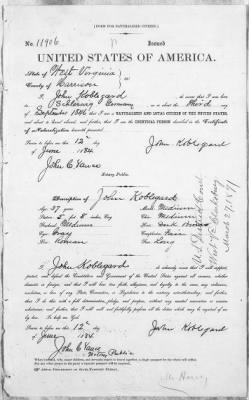 [FORM FOR NATURALIZED CITIZEN.]
No. 11906 Issued
UNITED STATES OF AMERICA.
State of West Virginia
County of Harrison
I, John Koblegard, do swear that I was born
in Germany, on or about the third day
of September 1846; that I am a NATURALIZED AND LOYAL CITIZEN OF THE UNITED STATES,
and about to travel abroad; and further, that I am the IDENTICAL PERSON described in the Certificate
of Naturalization herewith presented.
Sworn to before me this 12
of June 1884
John Koblegard
John C Vance
Notary Public.
Description of John Koblegard
Age: 37
Mouth: Medium
Stature: 5 ft 8 inches, Eng.
Chin: Medium
Forehead: Medium
Hair: Dark Brown
Eyes: Gray
Complexion: Fair
Nose: Roman
Face: Long
I, John Koblegard, do solemnly swear that I will support,
protect, and defend the Constitution and Government of the United States against all enemies, whether
domestic or foreign; and that I will bear true faith, allegiance, and loyalty to the same, any ordinance,
resolution, or law of any State, Convention, or Legislature to the contrary notwithstanding; and further,
that I do this with a full determination, pledge, and purpose, without any mental reservation or evasion
whatsoever; and further, that I will well and faithfully perform all the duties which may be required of me
by law. So help me God.
Sworn to before me this 12 day
of June 1884
John Koblegard
John C Vance
Notary Public
March 27, 1871